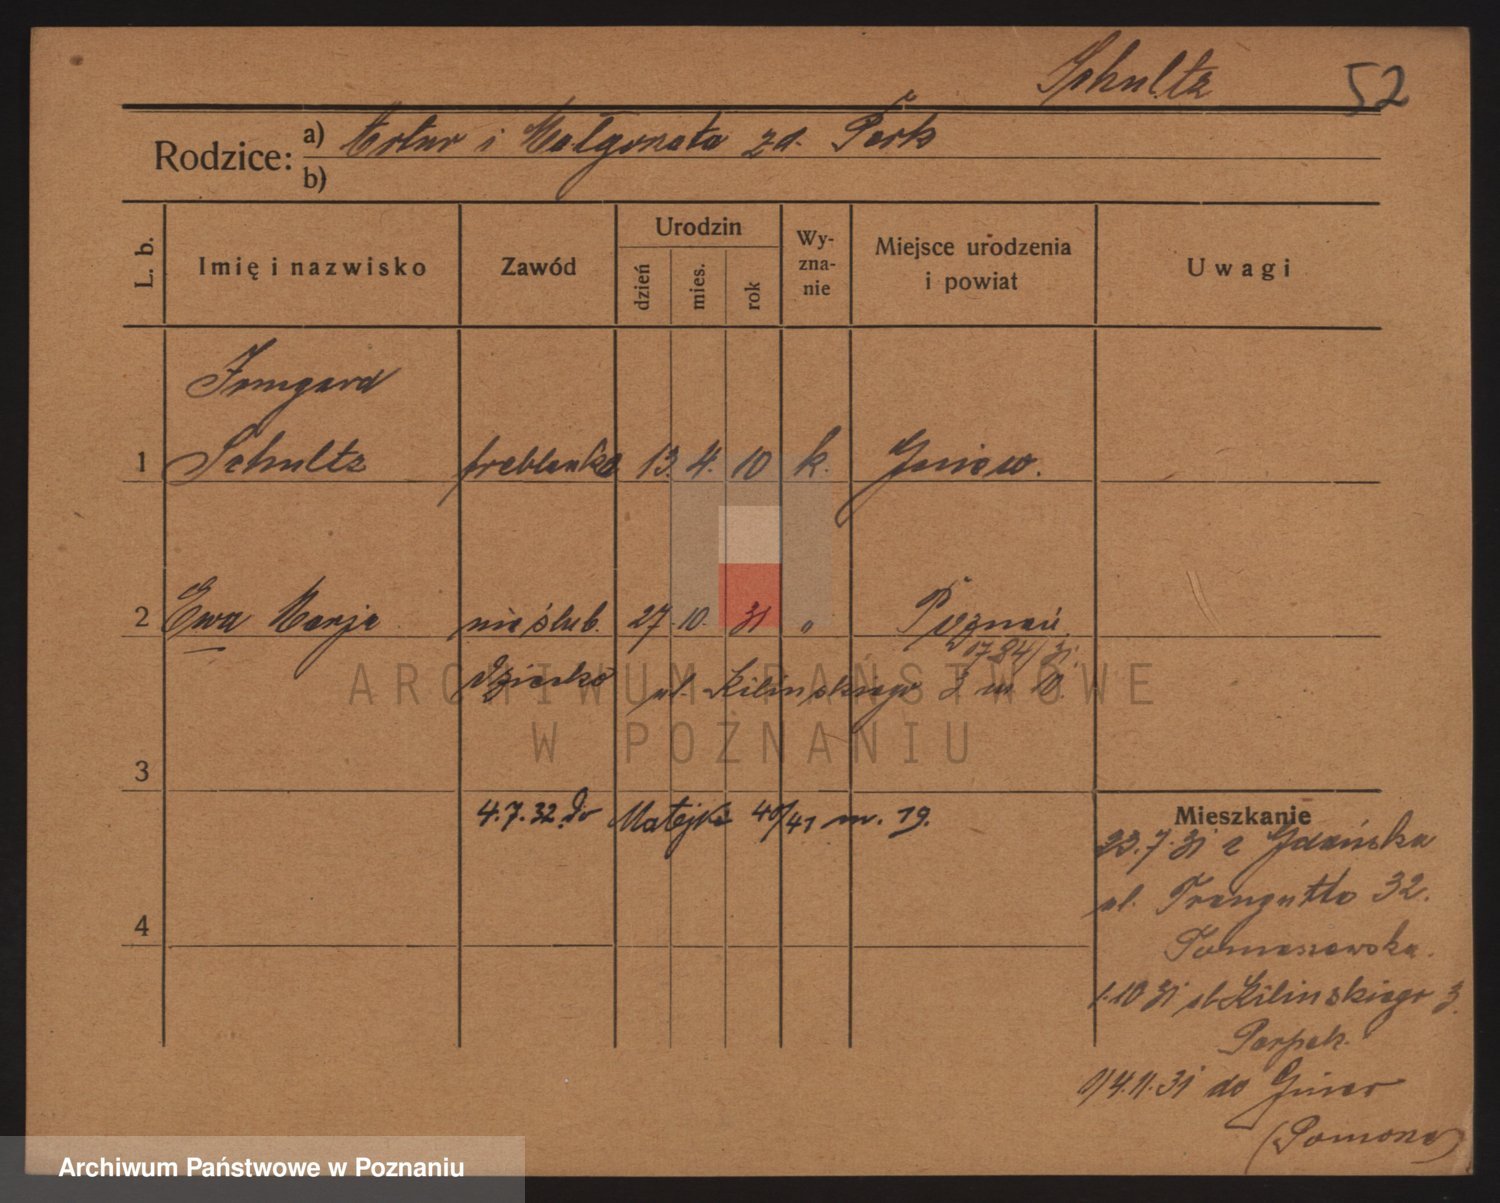 Schultz 52
Rodzice: a) Artur i Małgorzata zd. Park
b)
L. b. Imię i nazwisko Zawód Urodzin dzień mies. rok Wy-zna-nie Miejsce urodzenia i powiat Uwagi
Irmgard
1 Schultz freblanka 13. 4. 10 k. Gniew.
2 Ewa Marja nieślub. 27. 10. 31 " Poznań
1784/31.
dziecko ul. Kilińskiego 3 m 10.
ARCHIWUM PAŃSTWOWE
W POZNANIU
3
4.7.32. Matejki 40/41 m. 19.
Mieszkanie
23.7.31 z Gdańska
ul. Traugutta 32.
Tomaszewska.
4
1.10 31 ul Kilińskiego 3.
14.11.31 do Gniew
(Pomorze)
Archiwum Państwowe w Poznaniu